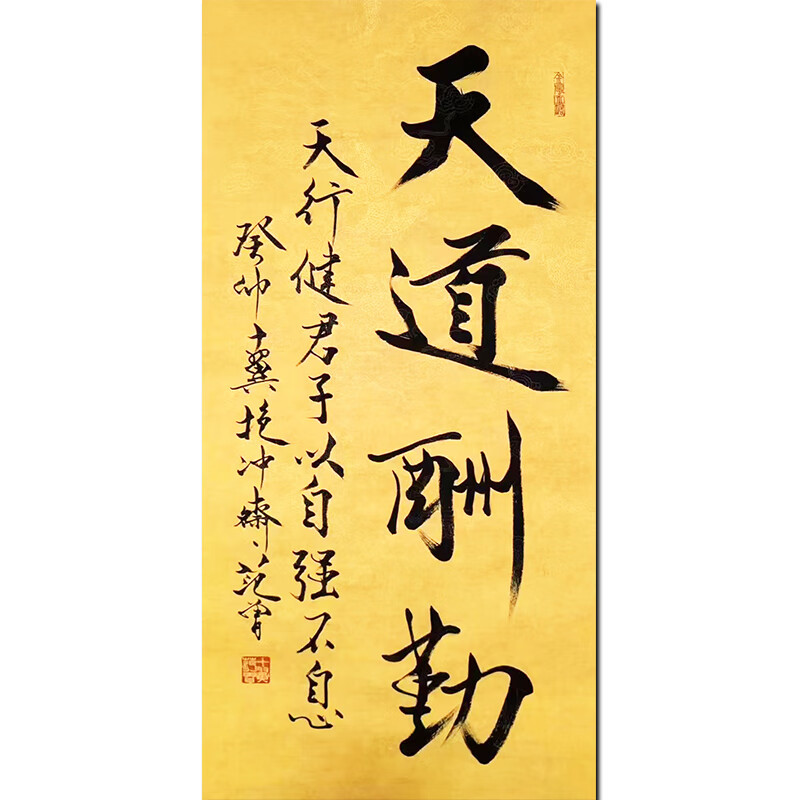 天道酬勤
天行健君子以自强不息
癸卯十翼抱冲斋范曾